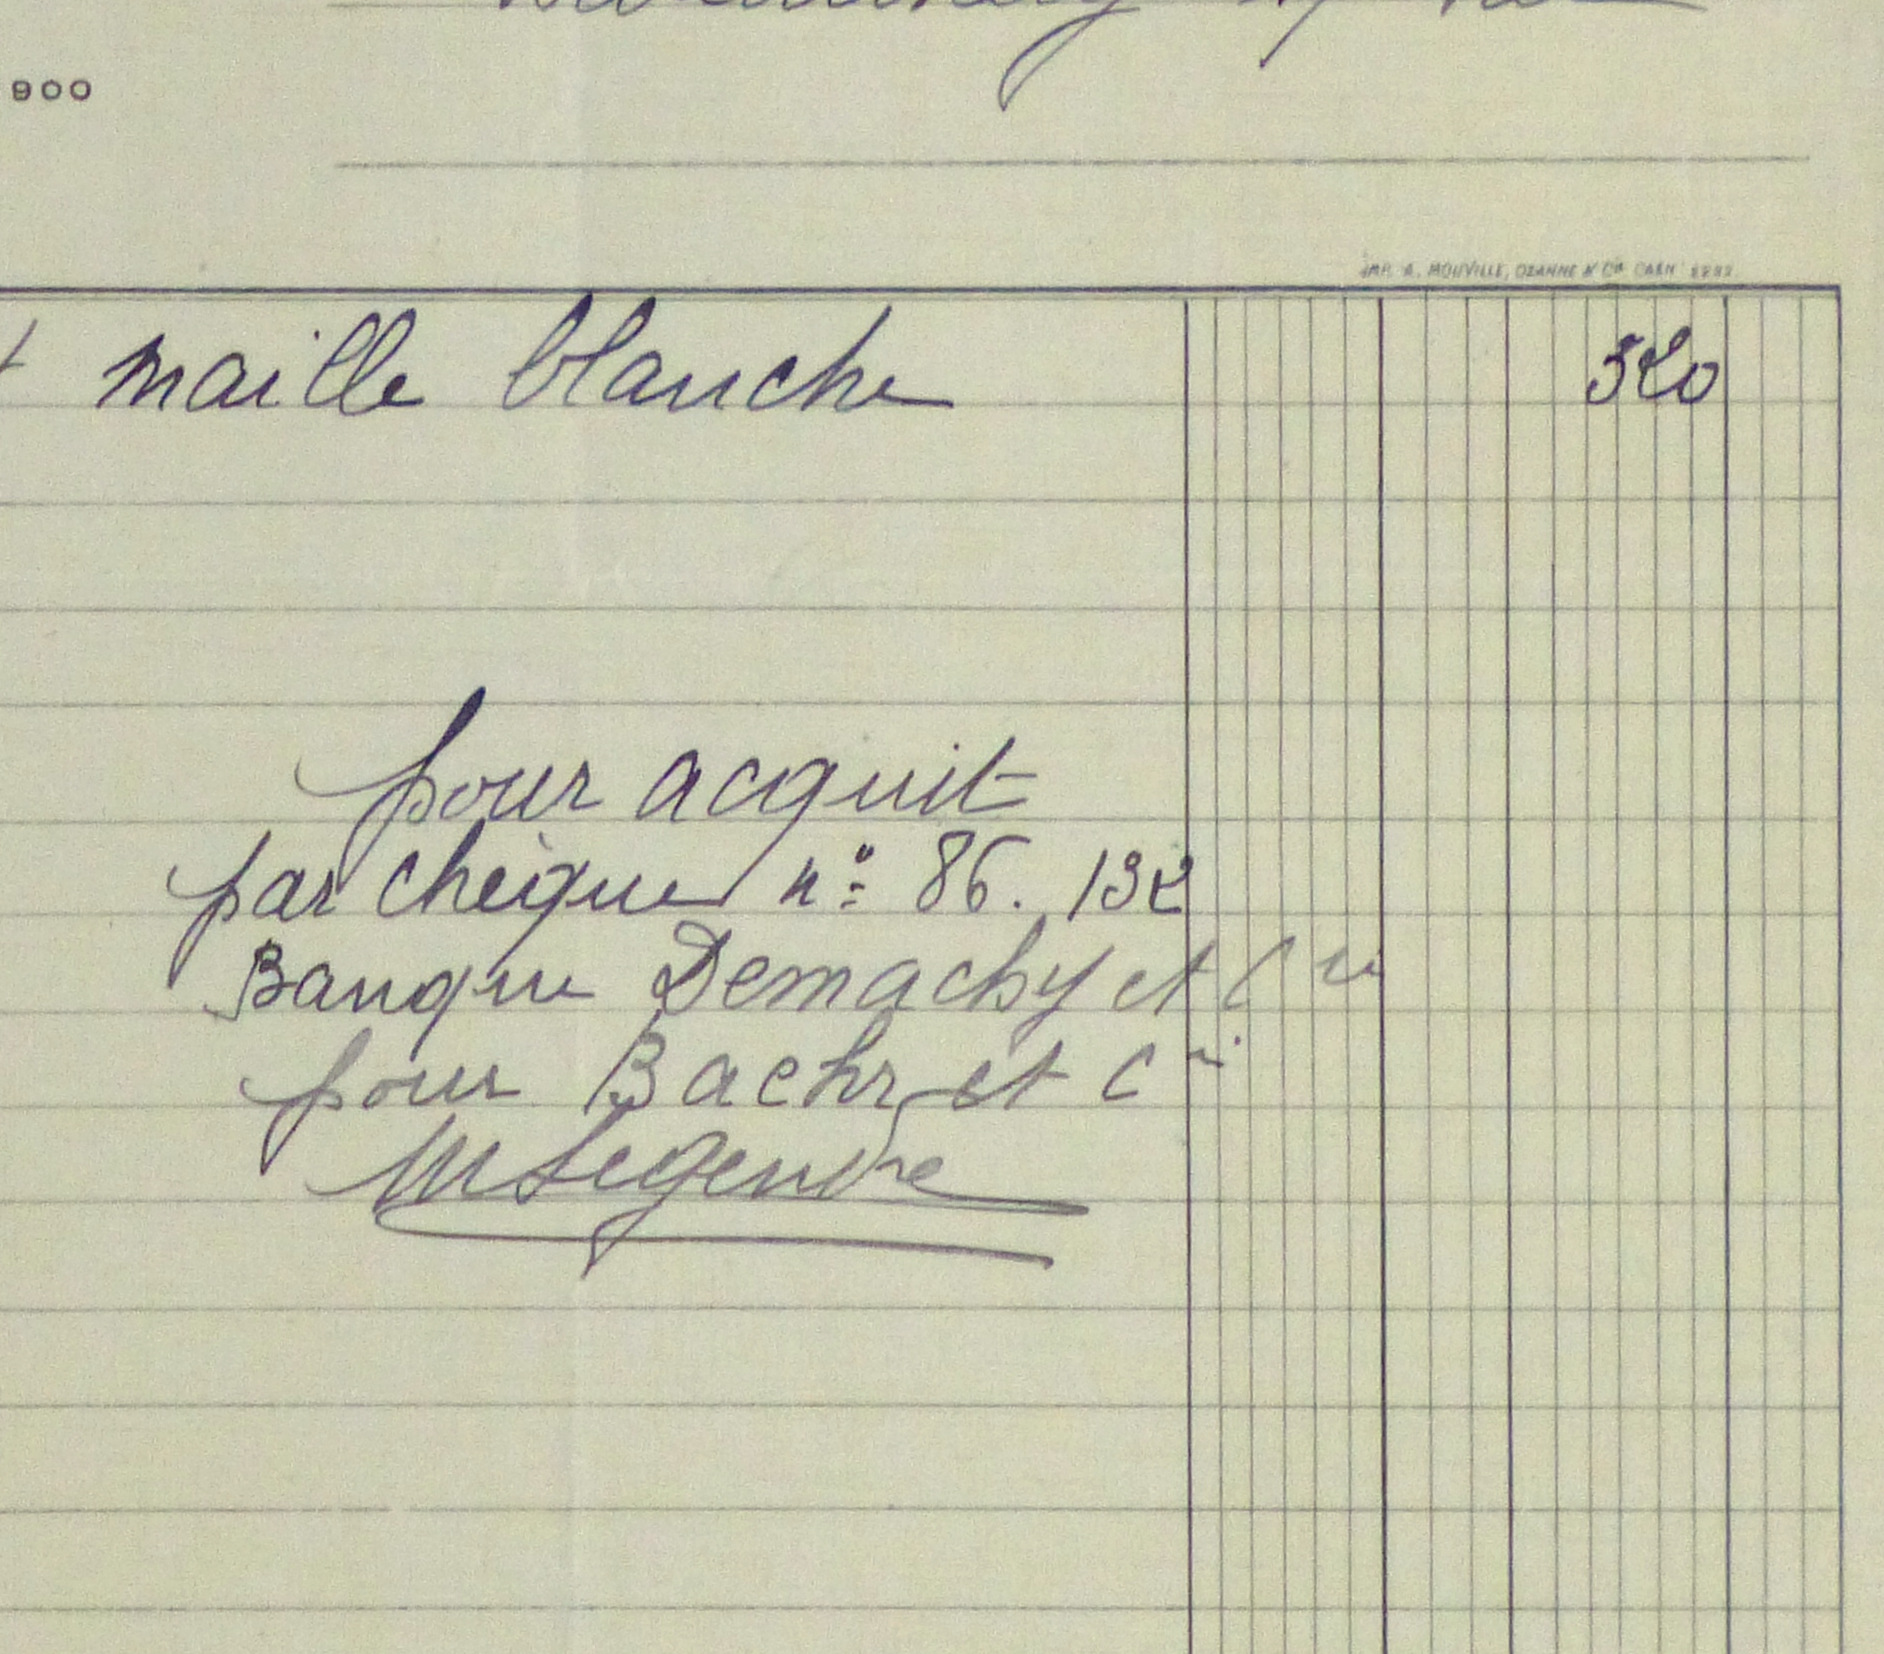 900
IMP. A. MOUVILLE, OZANNE & Cie CAEN
maille blanche 520
pour acquit
par chèque n° 86. 132
Banque Demachy et Cie
pour Baehr et Cie
M Legendre